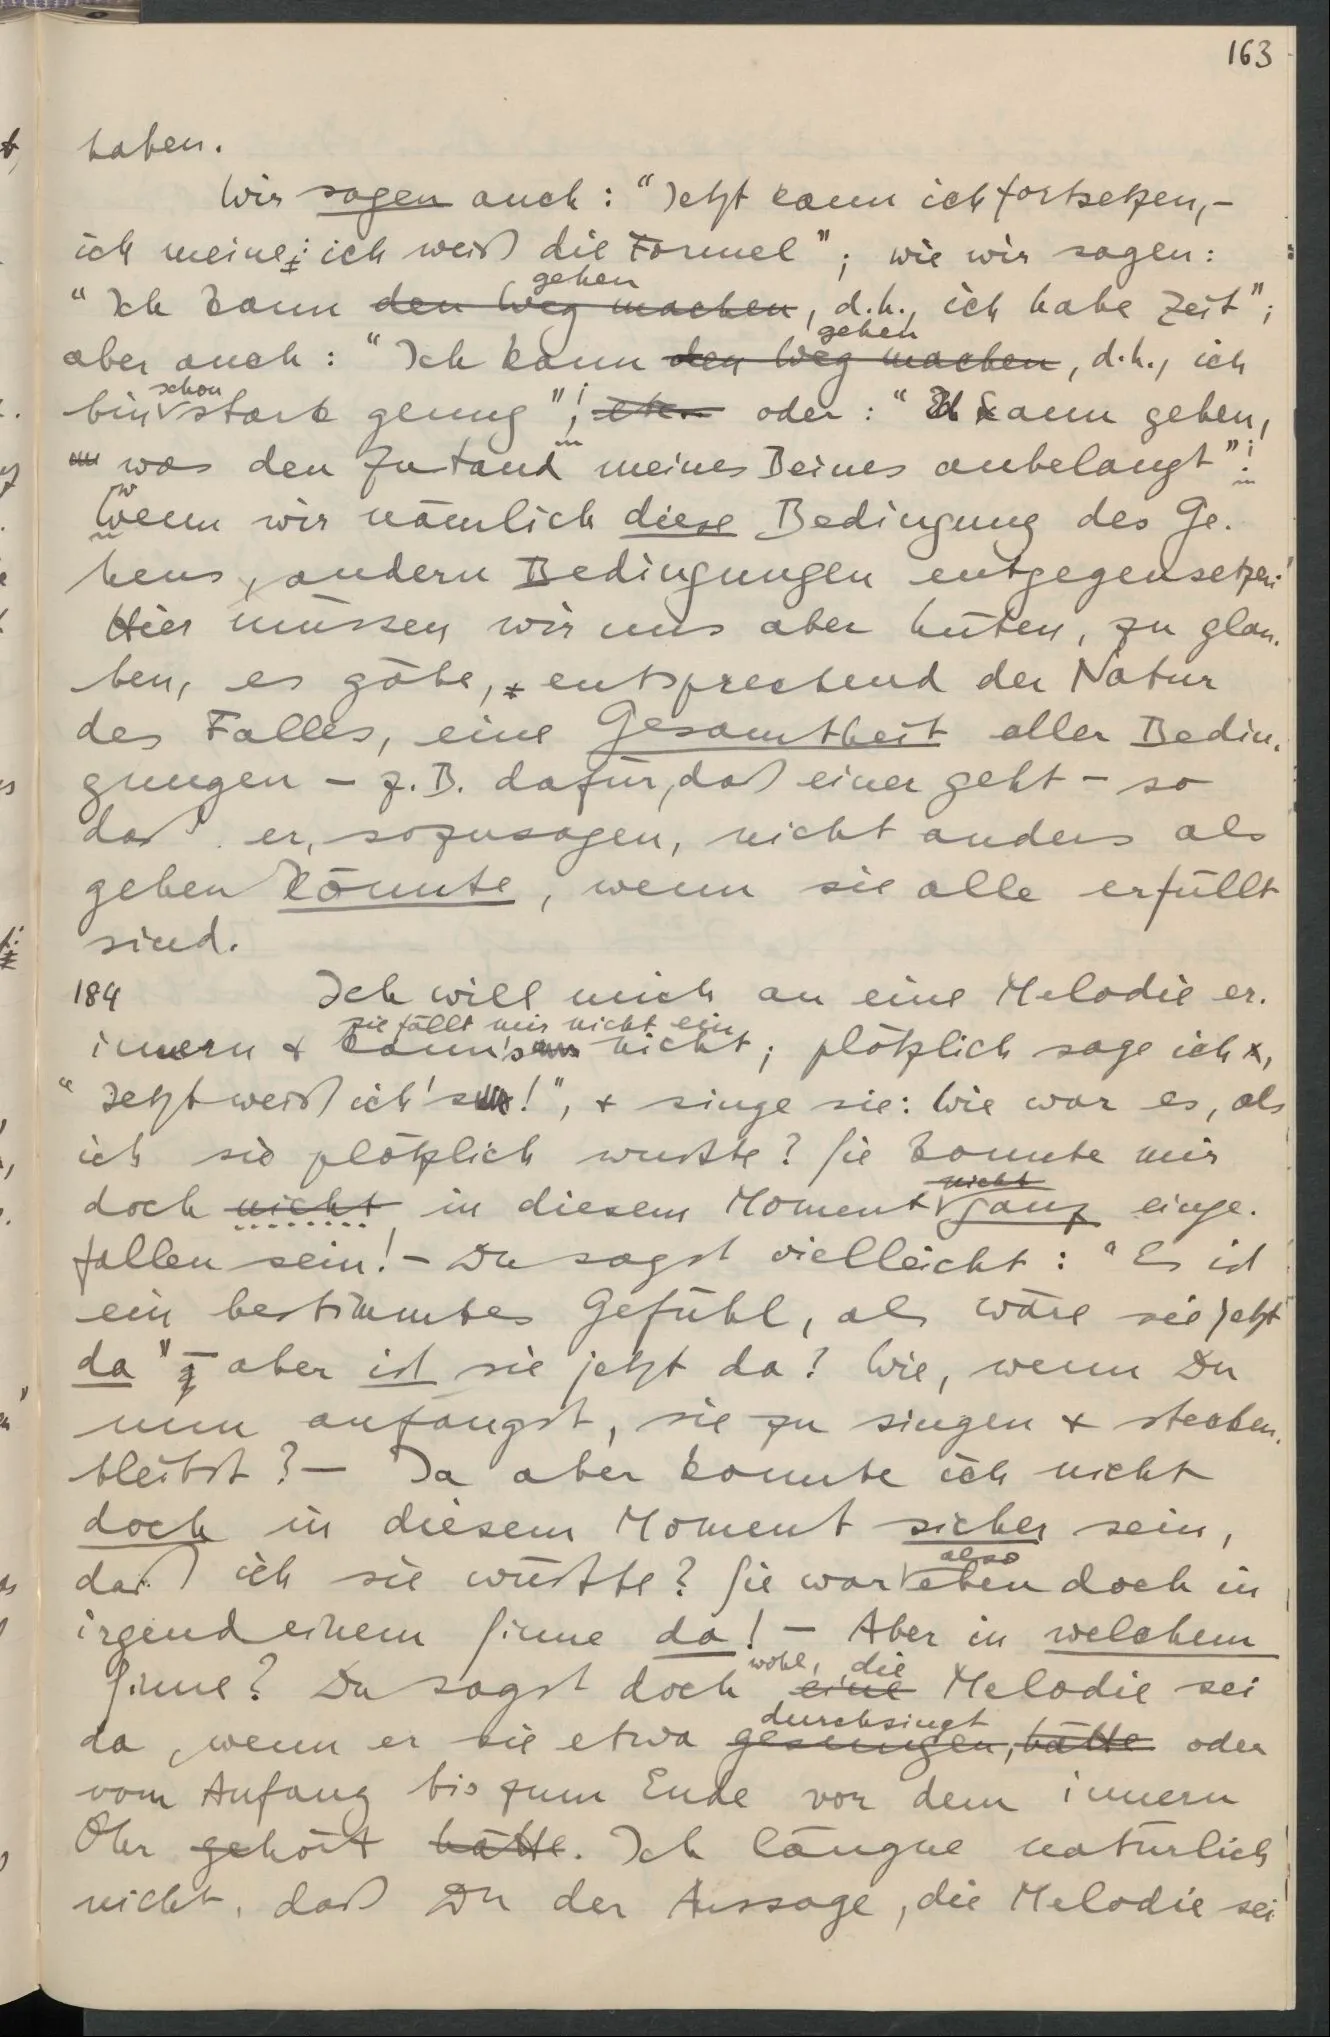 163
haben.
Wir sagen auch: “Jetzt kann ich fortsetzen, –
ich meine: ich weiß die Formel”; wie wir sagen:
gehen
“Ich kann den Weg machen, d.h., ich habe Zeit”;
gehen
aber auch: “Ich kann den Weg machen, d.h., ich
schon
bin stark genug”; etc. oder: “Ich kann gehen,
was den Zustand meines Beines anbelangt”;
wenn wir nämlich diese Bedingung des Ge-
hens, andern Bedingungen entgegensetzen.
Hier müssen wir uns aber hüten, zu glau-
ben, es gäbe, entsprechend der Natur
des Falles, eine Gesamtheit aller Bedin-
gungen – z.B. dafür, daß einer geht – so
daß er, sozusagen, nicht anders als
gehen könnte, wenn sie alle erfüllt
sind.
184 Ich will mich an eine Melodie er-
sie fällt mir nicht ein
innern & kann's nicht; plötzlich sage ich,
“Jetzt weiß ich's!”, & singe sie: Wie war es, als
ich sie plötzlich wußte? Sie konnte mir
nicht
doch nicht in diesem Moment ganz einge-
fallen sein! – Du sagst vielleicht: “Es ist
ein bestimmtes Gefühl, als wäre sie jetzt
da” – aber ist sie jetzt da? Wie, wenn Du
nun anfangst, sie zu singen & stecken-
bleibst? – Ja aber konnte ich nicht
doch in diesem Moment sicher sein,
also
daß ich sie wüßte? Sie war eben doch in
irgend einem Sinne da! – Aber in welchem
wohl, die
Sinne? Du sagst doch eine Melodie sei
durchsingt
da, wenn er sie etwa gesungen, hätte oder
vom Anfang bis zum Ende vor dem innern
Ohr gehört hätte. Ich läugne natürlich
nicht, daß Du der Aussage, die Melodie sei